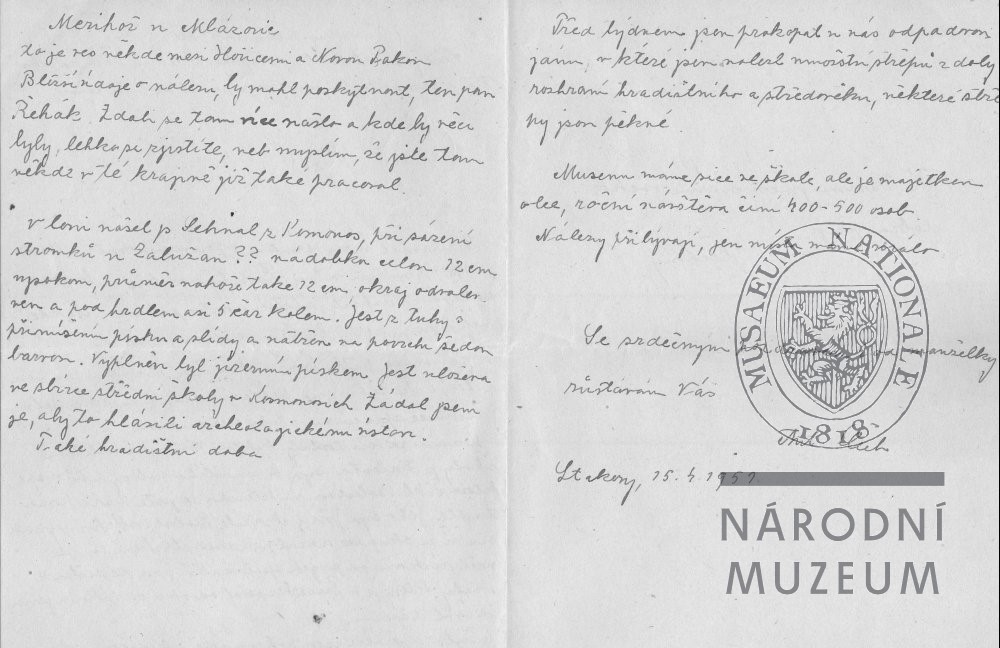 Mezihoř u Mlázovic
to je
někde mezi Hořicemi a Novou Pakou
Bližší údaje o nálezu, by mohl poskytnout, ten pan
Řehák. Zdali se tam více našlo a kde by věci
byly, lehko si zjistíte, neb myslím, že jste tam
někde v té krajině již také pracoval.
V loni našel p. Sehnal z Kosmonos, při sázení
stromků u Zalužan ?? nádobku celou 12 cm
vysokou, průměr nahoře také 12 cm okraj
a pod hrdlem asi 5 čar kolem. Jest z tuhy s
přimíšením písku a slídy a natřen na povrchu šedou
barvou. Vyplněn byl jizerním pískem. Jest uložena
ve sbírce střední školy v Kosmonosích. Žádal jsem
je, aby to hlásili archeologickému ústavu.
Také hradištní doba
Před týdnem jsem prokopal u nás odpadovou
jámu, v které jsem nalezl množství střepů z doby
rozhraní hradištního a středověku, některé stře
py jsou pěkné.
Museum máme sice ve škole, ale je majetkem
obce, roční návštěva činí 400-500 osob.
Nálezy přibývají, jen místa máme málo.
Se srdečným pozdravem od manželky
zůstávám Váš
Stakory, 15.4.1951
MUSAEUM NATIONALE
1818
NÁRODNÍ
MUZEUM